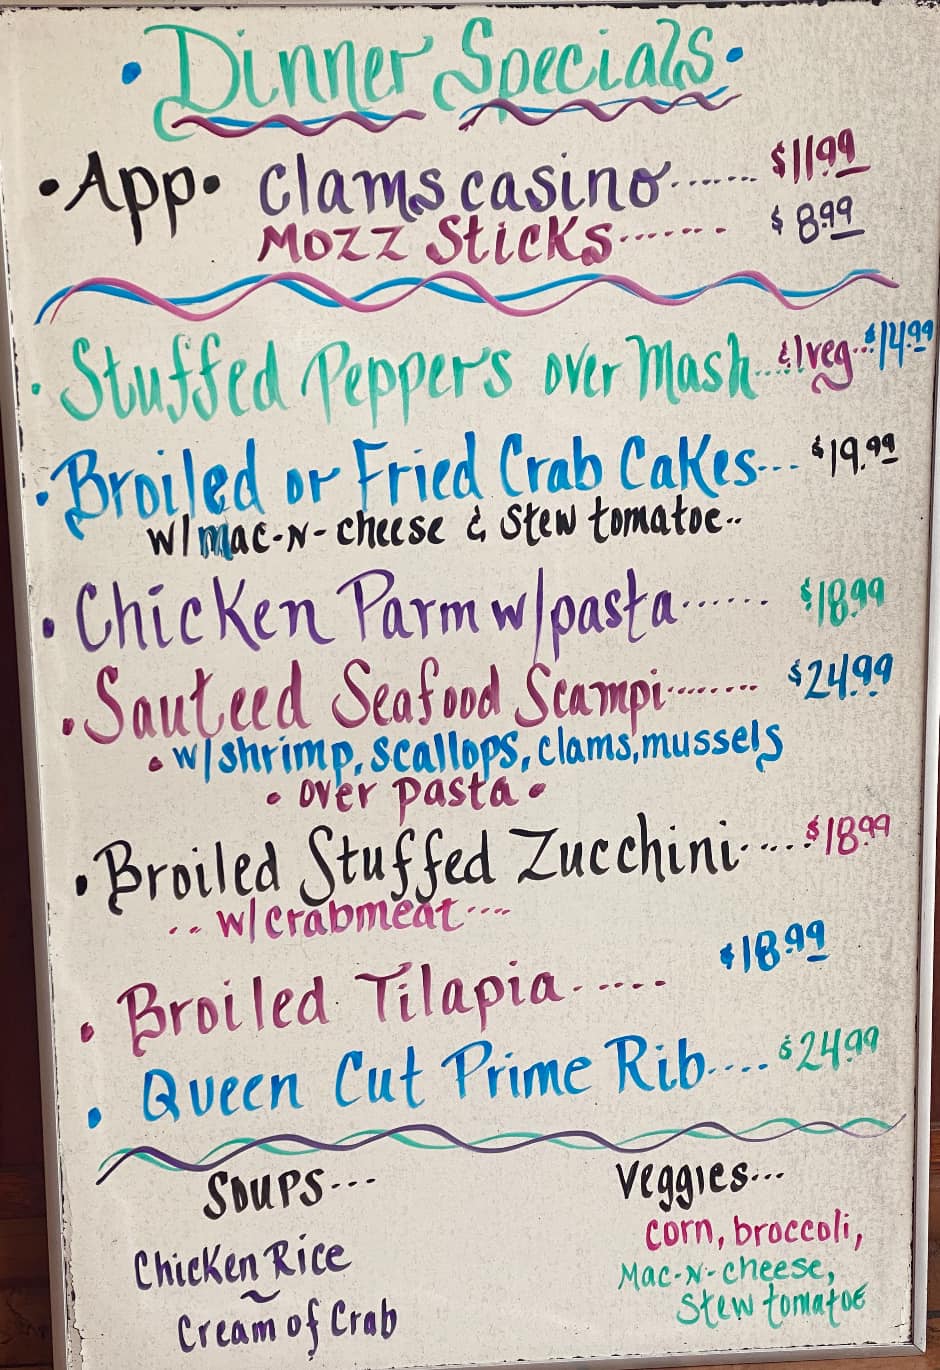 • Dinner Specials •
• App • Clams casino....... $11.99
Mozz Sticks....... $8.99
• Stuffed Peppers over Mash...&1veg...$14.99
• Broiled or Fried Crab Cakes... $19.99
w/mac-n-cheese & Stew tomatoe..
• Chicken Parm w/pasta...... $18.99
• Sauteed Seafood Scampi....... $24.99
• w/shrimp, scallops, clams, mussels
• over pasta •
• Broiled Stuffed Zucchini.....$18.99
.. w/crabmeat....
• Broiled Tilapia..... $18.99
• Queen Cut Prime Rib.... $24.99
Soups...
Chicken Rice
~
Cream of Crab
Veggies...
corn, broccoli,
Mac-N-cheese,
Stew tomatoe